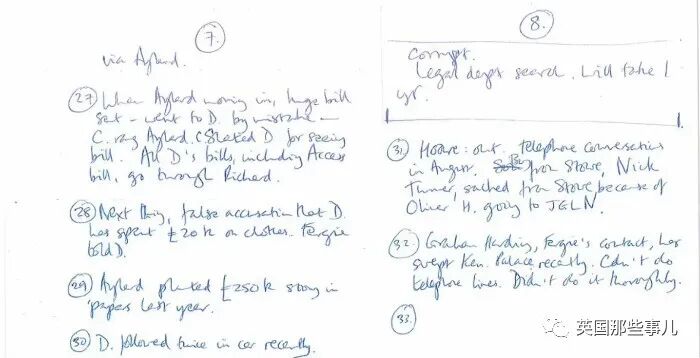 7.
via Aylard.
27 When Aylard moving in, huge bill
sent – went to D. by mistake –
C. rang Aylard. C slated D for seeing
bill. All D's bills, including Access
bill, go through Richard.
28 Next thing, false accusation that D.
has spent £20k on clothes. Fergie
told D.
29 Aylard planted £250k story in
papers last year.
30 D. followed twice in car recently.
8.
corrupt.
Legal dept search. Will take 1
yr.
31 Hoare: out. telephone conversations
in August. from Stowe, Nick
Turner, sacked from Stowe because of
Oliver H. going to JGLN.
32. Graham Harding, Fergie's contact, has
swept Ken. Palace recently. Cdn't do
telephone lines. Didn't do it thoroughly.
33.
英国那些事儿